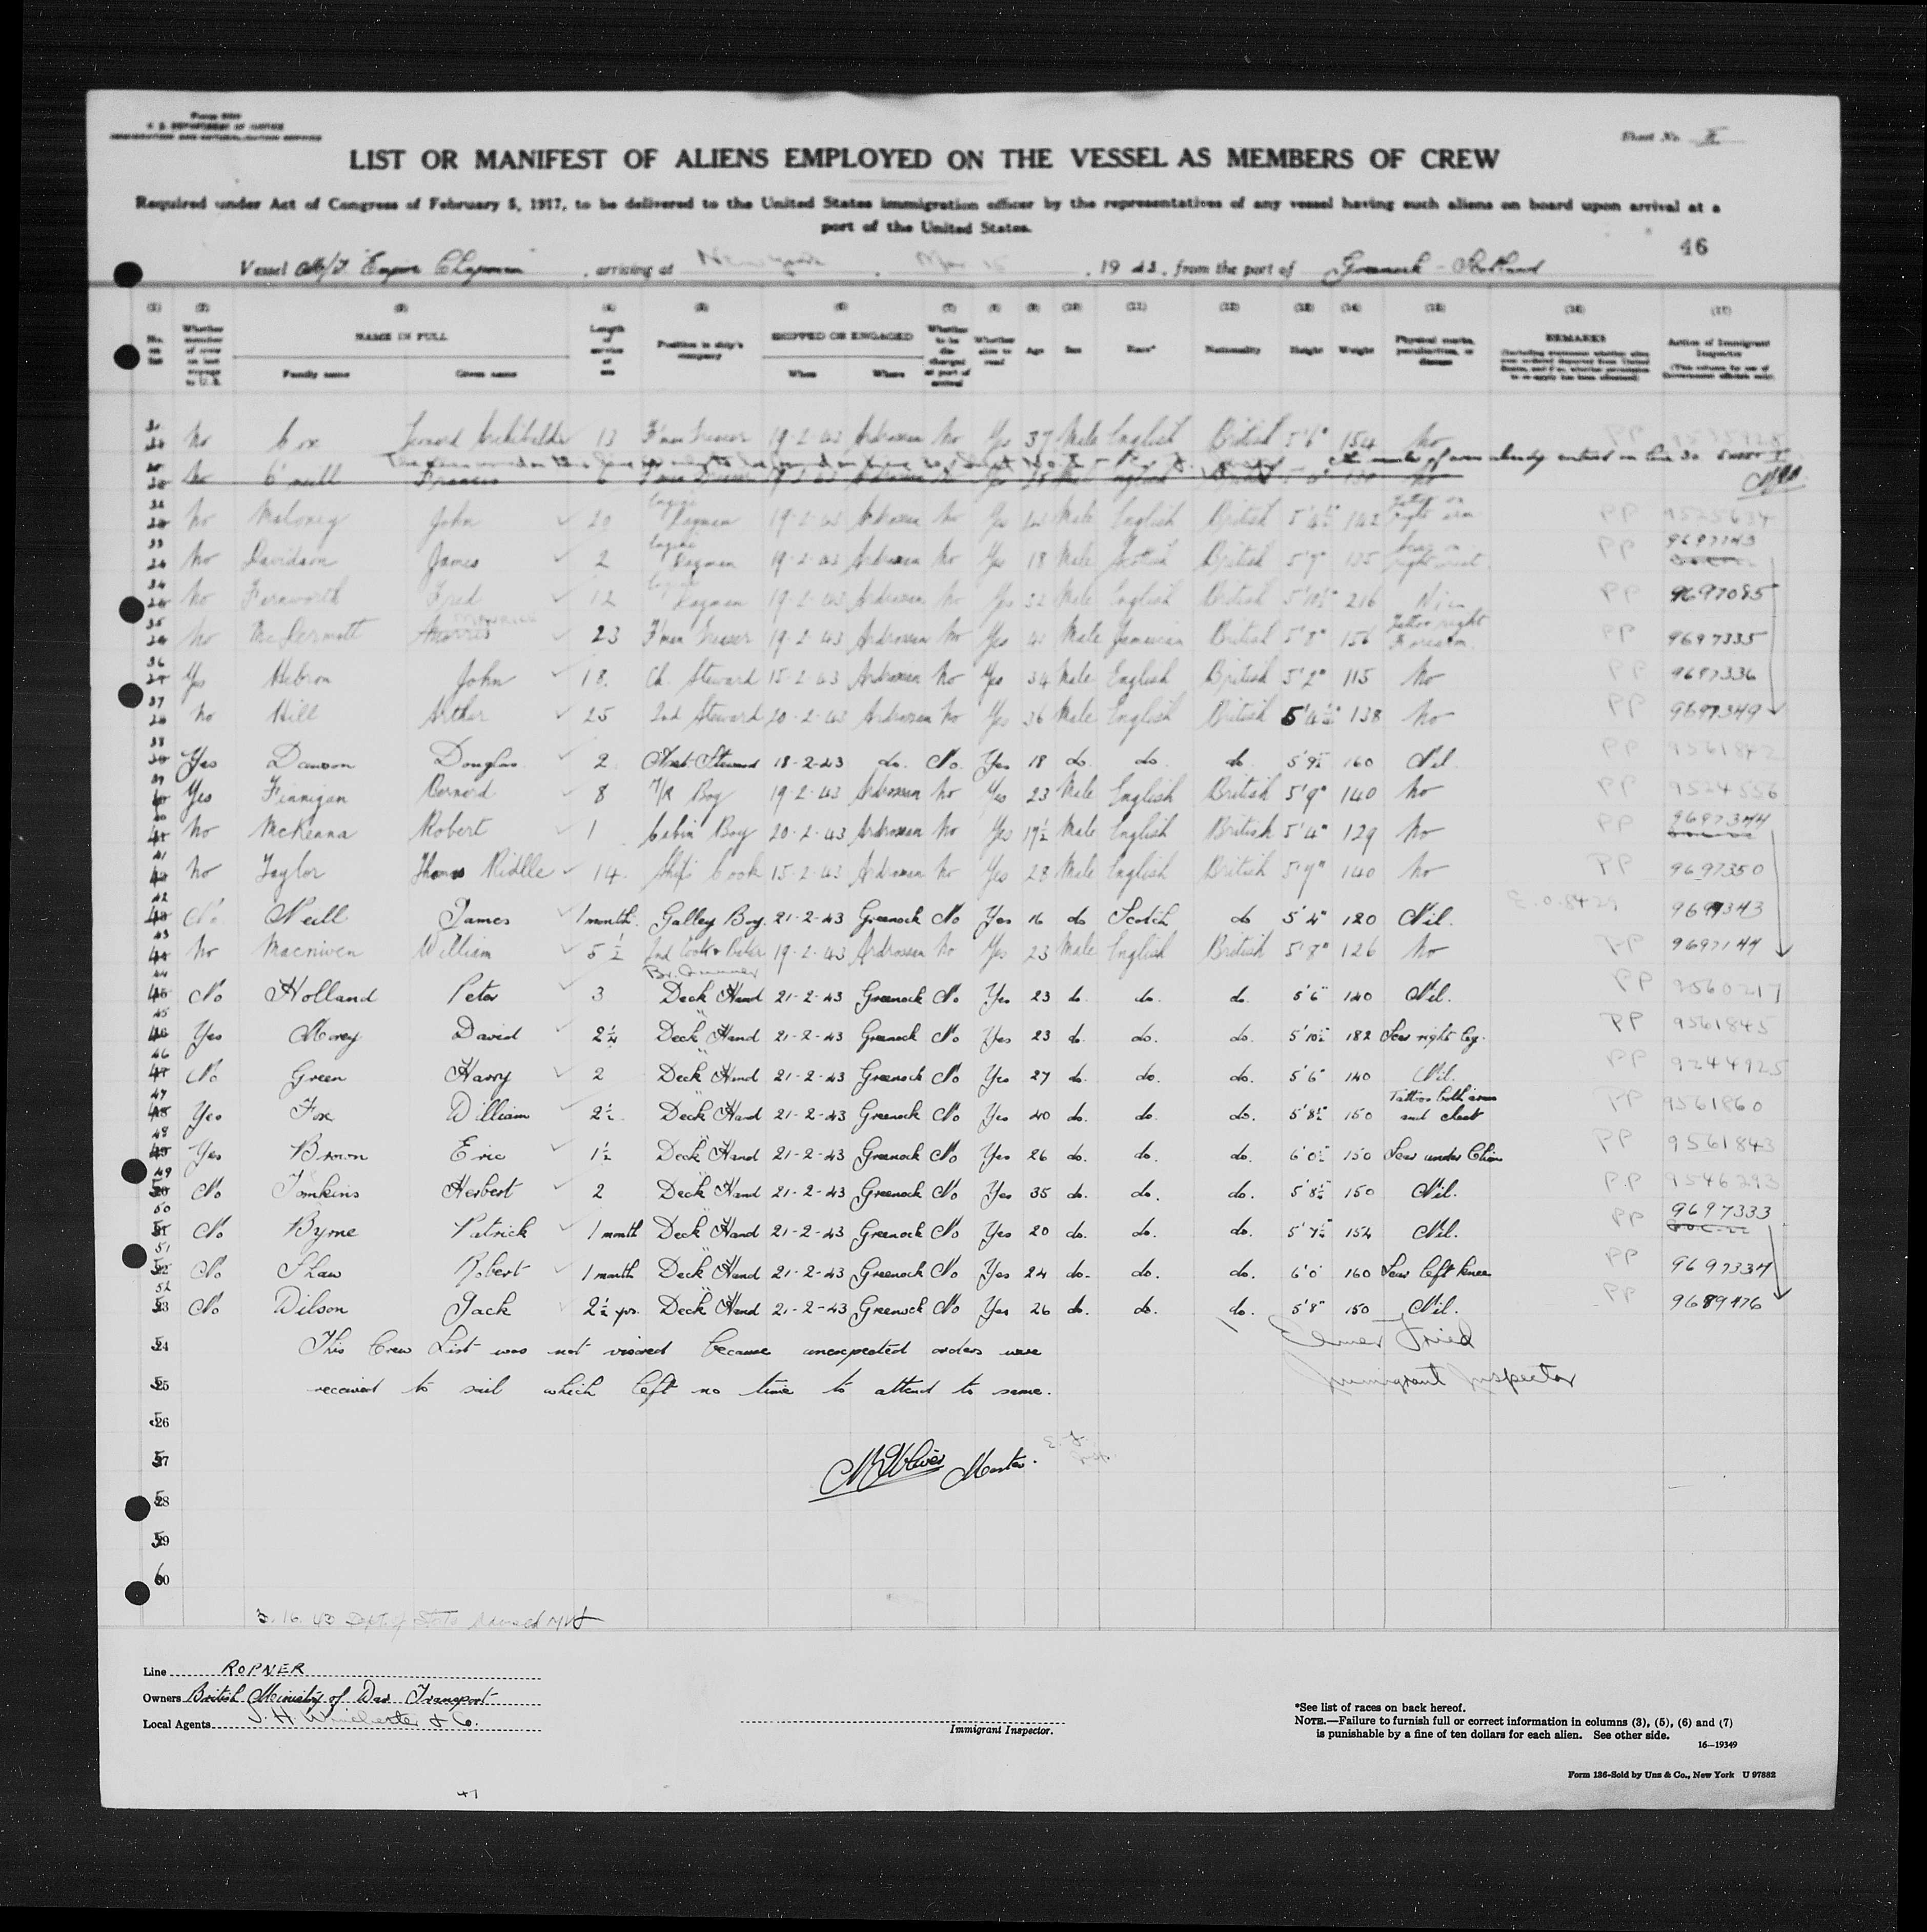 U. S. DEPARTMENT OF JUSTICE
IMMIGRATION AND NATURALIZATION SERVICE
Sheet No. II
LIST OR MANIFEST OF ALIENS EMPLOYED ON THE VESSEL AS MEMBERS OF CREW
Required under Act of Congress of February 5, 1917, to be delivered to the United States immigration officer by the representatives of any vessel having such aliens on board upon arrival at a
part of the United States.
46
Vessel Empire Chapman, arriving at New York, Mar 15, 1943, from the port of Greenock - Scotland
(1) (2) (3) (4) (5) (6) (7) (8) (9) (10) (11) (12) (13) (14) (15) (16) (17)
No. on list Whether member of crew on last voyage to U.S. NAME IN FULL Family name Given name Length of service at sea Position in ship's company SHIPPED OR ENGAGED When Where Whether to be discharged at port of arrival Whether able to read Age Sex Race* Nationality Height Weight Physical marks, peculiarities, or disease REMARKS Action of Immigrant Inspector
No Cox Archibald 13 F'man Greaser 19-2-43 Ardrossan No Yes 37 Male English British 5'6" 154 No PP
No O'neill Francis 6
32 No Maloney John 20 Engine 19-2-43 Ardrossan No Yes Male English British 142 Tattoo on right arm PP 9525634
33 No Davidson James 2 Engine 19-2-43 Ardrossan No Yes 18 Male Scottish British 5'9" 135 PP 9697143
34 No Farnworth Fred 12 19-2-43 Ardrossan No Yes 32 Male English British 216 PP 9697085
35 No McDermott Morris 23 F'man Greaser 19-2-43 Ardrossan No Yes 41 Male Jamaican British 5'8" 156 Tattoo right Forearm PP 9697335
36 Yes Hebron John 18 Ch. Steward 15-2-43 Ardrossan No Yes 34 Male English British 5'2" 115 No PP 9697336
37 No Hill Arther 25 2nd Steward 20-2-43 Ardrossan No Yes 36 Male English British 5'4½" 138 No PP 9697349
38 Yes Dawson Douglas 2 Asst. Steward 18-2-43 do. No. Yes 18 do do. do. 5'9½" 160 Nil. PP 9561842
39 Yes Finnigan Bernard 8 M/R Boy 19-2-43 Ardrossan No Yes 23 Male English British 5'9" 140 No PP 9524556
40 No McKenna Robert 1 Cabin Boy 20-2-43 Ardrossan No Yes 17½ Male English British 5'4" 129 No PP 9697344
41 No Taylor Thomas Riddle 14 Ships Cook 15-2-43 Ardrossan No Yes 28 Male English British 5'7" 140 No PP 9697350
42 No. Neill James 1 month. Galley Boy. 21-2-43 Greenock No Yes 16 do Scotch do 5'4" 120 Nil. E.O. 8429 9697343
43 No Macniven William 5½ 2nd Cook & Baker 19-2-43 Ardrossan No Yes 23 Male English British 5'8" 126 No PP 9697144
Br. Gunner
44 No Holland Peter 3 Deck Hand 21-2-43 Greenock No Yes 23 do. do. do. 5'6" 140 Nil. PP 9560217
45 Yes Morey David 2¼ Deck Hand 21-2-43 Greenock No Yes 23 do. do. do. 5'10½" 182 Scar right leg. PP 9561845
46 No Green Harry 2 Deck Hand 21-2-43 Greenock No Yes 27 do. do. do. 5'6" 140 Nil. PP 9244925
47 Yes Fox William 2½ Deck Hand 21-2-43 Greenock No Yes 40 do. do. do. 5'8½" 150 Tattoo both arms and chest PP 9561860
48 Yes Brown Eric 1½ Deck Hand 21-2-43 Greenock No Yes 26 do. do. do. 6'0½" 150 Scar under Chin PP 9561843
49 No Tomkins Herbert 2 Deck Hand 21-2-43 Greenock No Yes 35 do. do. do. 5'8½" 150 Nil. P.P 9546293
50 No Byrne Patrick 1 month Deck Hand 21-2-43 Greenock No Yes 20 do. do. do. 5'7½" 154 Nil. PP 9697333
51 No Shaw Robert 1 month Deck Hand 21-2-43 Greenock No Yes 24 do. do. do. 6'0" 160 Scar left knee PP 9697334
52 No Wilson Jack 2½ yrs. Deck Hand 21-2-43 Greenock No Yes 26 do. do. do. 5'8" 150 Nil. PP 9689476
54 This Crew List was not visaed because unexpected orders were Elmer Fried
55 received to sail which left no time to attend to same. Immigrant Inspector
56
57 Master.
58
59
60
3.16.43 Dept of State Advised
Line ROPNER
Owners British Ministry of War Transport
Local Agents J. H. Winchester & Co.
Immigrant Inspector.
*See list of races on back hereof.
NOTE.—Failure to furnish full or correct information in columns (3), (5), (6) and (7)
is punishable by a fine of ten dollars for each alien. See other side.
16—19349
Form 136-Sold by Unz & Co., New York U 97882
47